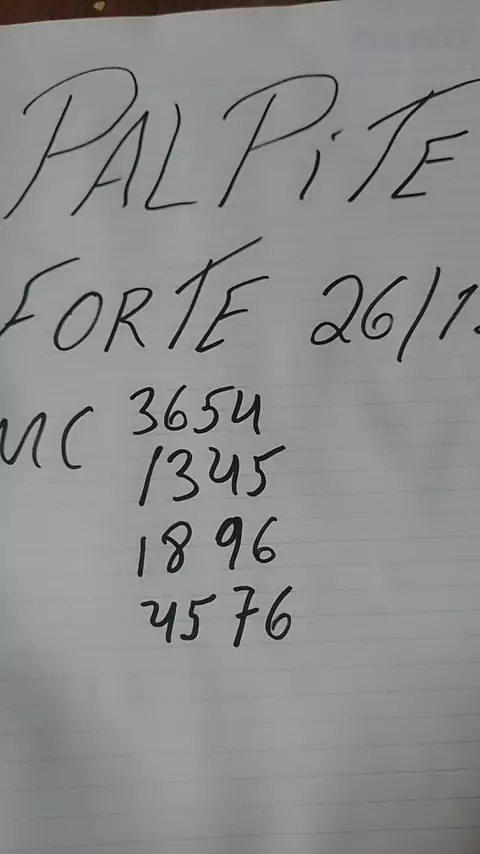 PALPiTE
FORTE 26/1
MC 3654
1345
1896
4576